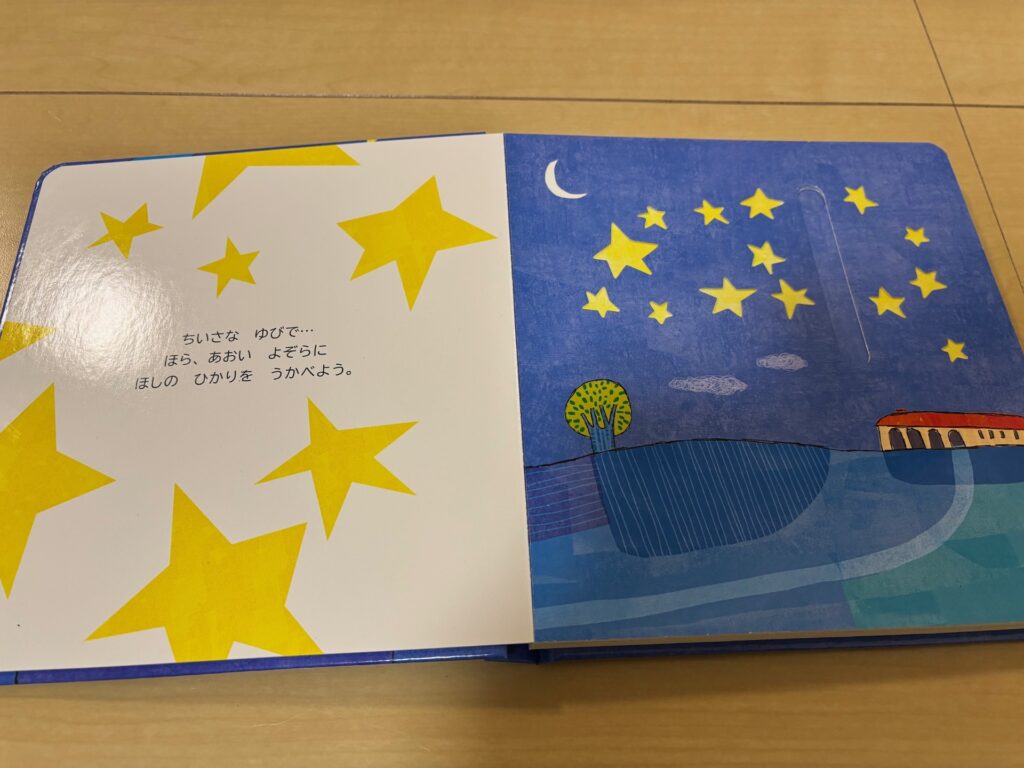 ちいさな　ゆびで…
ほら、あおい　よぞらに
ほしの　ひかりを　うかべよう。